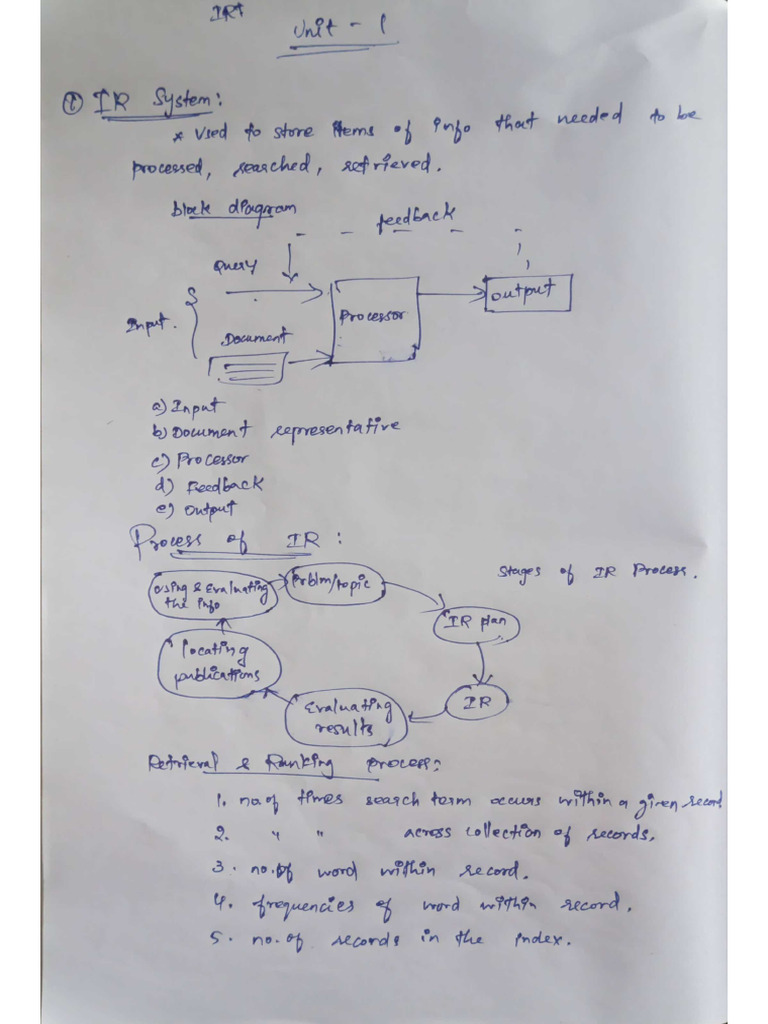 IRT
Unit - 1
① IR System:
* Used to store items of info that needed to be
processed, searched, retrieved.
block diagram
feedback
Query
Input.
Processor
output
Document
a) Input
b) Document representative
c) Processor
d) Feedback
e) Output
Process of IR :
Stages of IR Process.
Using & Evaluating
the info
Prblm/topic
IR plan
locating
publications
IR
Evaluating
results
Retrieval & Ranking process:
1. no.of times search term occurs within a given record
2. " " across collection of records.
3. no.of word within record.
4. frequencies of word within record.
5. no.of records in the index.